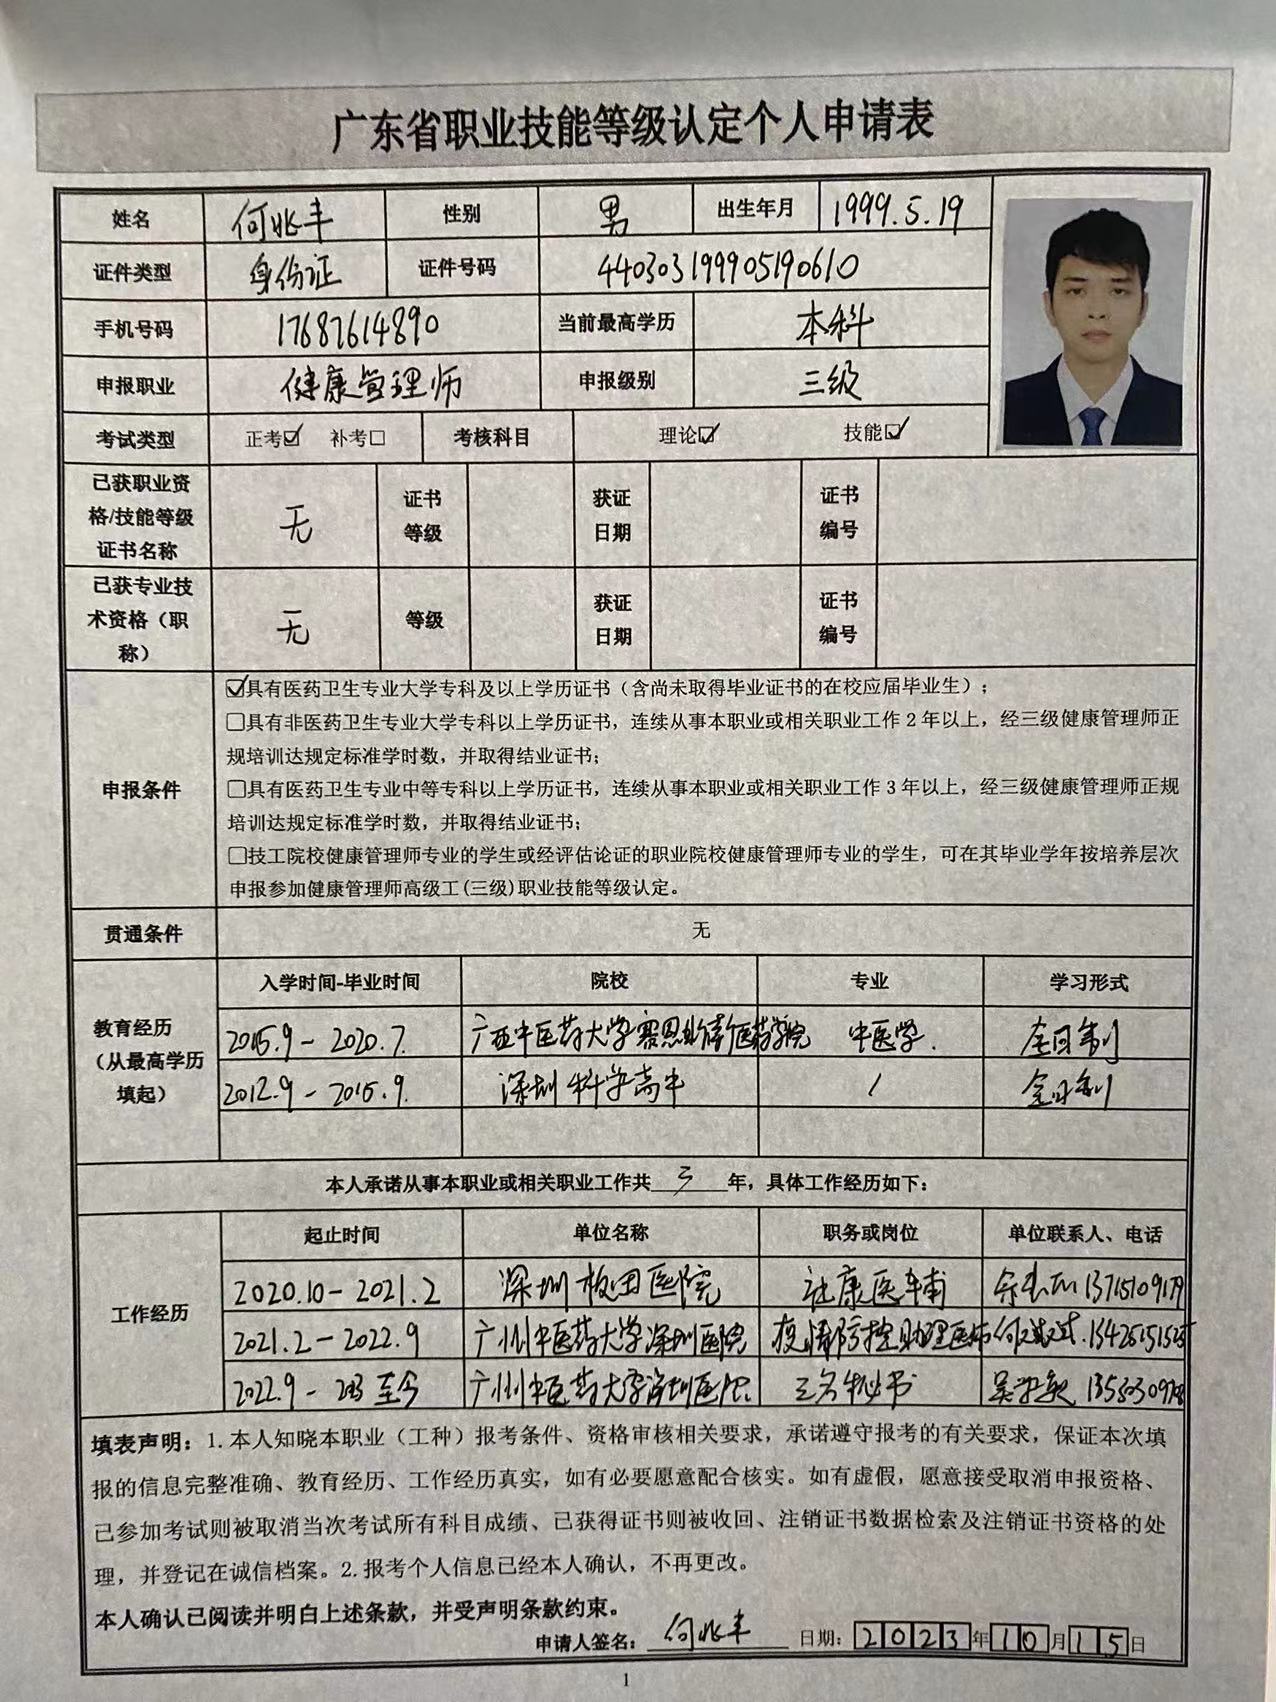 广东省职业技能等级认定个人申请表
姓名 何兆丰 性别 男 出生年月 1999.5.19
证件类型 身份证 证件号码 440303199905190610
手机号码 17687614890 当前最高学历 本科
申报职业 健康管理师 申报级别 三级
考试类型 正考☑ 补考□ 考核科目 理论☑ 技能☑
已获职业资格/技能等级证书名称 无 证书等级 获证日期 证书编号
已获专业技术资格（职称） 无 等级 获证日期 证书编号
申报条件
☑具有医药卫生专业大学专科及以上学历证书（含尚未取得毕业证书的在校应届毕业生）；
□具有非医药卫生专业大学专科以上学历证书，连续从事本职业或相关职业工作2年以上，经三级健康管理师正
规培训达规定标准学时数，并取得结业证书；
□具有医药卫生专业中等专科以上学历证书，连续从事本职业或相关职业工作3年以上，经三级健康管理师正规
培训达规定标准学时数，并取得结业证书；
□技工院校健康管理师专业的学生或经评估论证的职业院校健康管理师专业的学生，可在其毕业学年按培养层次
申报参加健康管理师高级工(三级)职业技能等级认定。
贯通条件 无
教育经历（从最高学历填起）
入学时间-毕业时间 院校 专业 学习形式
2015.9－2020.7. 广西中医药大学赛恩斯新医药学院 中医学. 全日制
2012.9－2015.9. 深圳科学高中 / 全日制
本人承诺从事本职业或相关职业工作共 3 年，具体工作经历如下：
工作经历
起止时间 单位名称 职务或岗位 单位联系人、电话
2020.10－2021.2 深圳坂田医院 社康医辅
2021.2－2022.9 广州中医药大学深圳医院 疫情防控助理医师
2022.9－ 至今 广州中医药大学深圳医院 秘书
填表声明：1.本人知晓本职业（工种）报考条件、资格审核相关要求，承诺遵守报考的有关要求，保证本次填
报的信息完整准确、教育经历、工作经历真实，如有必要愿意配合核实。如有虚假，愿意接受取消申报资格、
已参加考试则被取消当次考试所有科目成绩、已获得证书则被收回、注销证书数据检索及注销证书资格的处
理，并登记在诚信档案。2.报考个人信息已经本人确认，不再更改。
本人确认已阅读并明白上述条款，并受声明条款约束。
申请人签名：何兆丰 日期：2023年10月15日
1